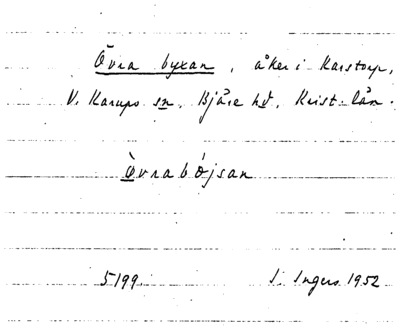 Övra byxan, åker i Karstorp,
V. Karups sn, Bjäre hd, Krist. län.
Òvrabǿjsan
5199 I. Ingers 1952